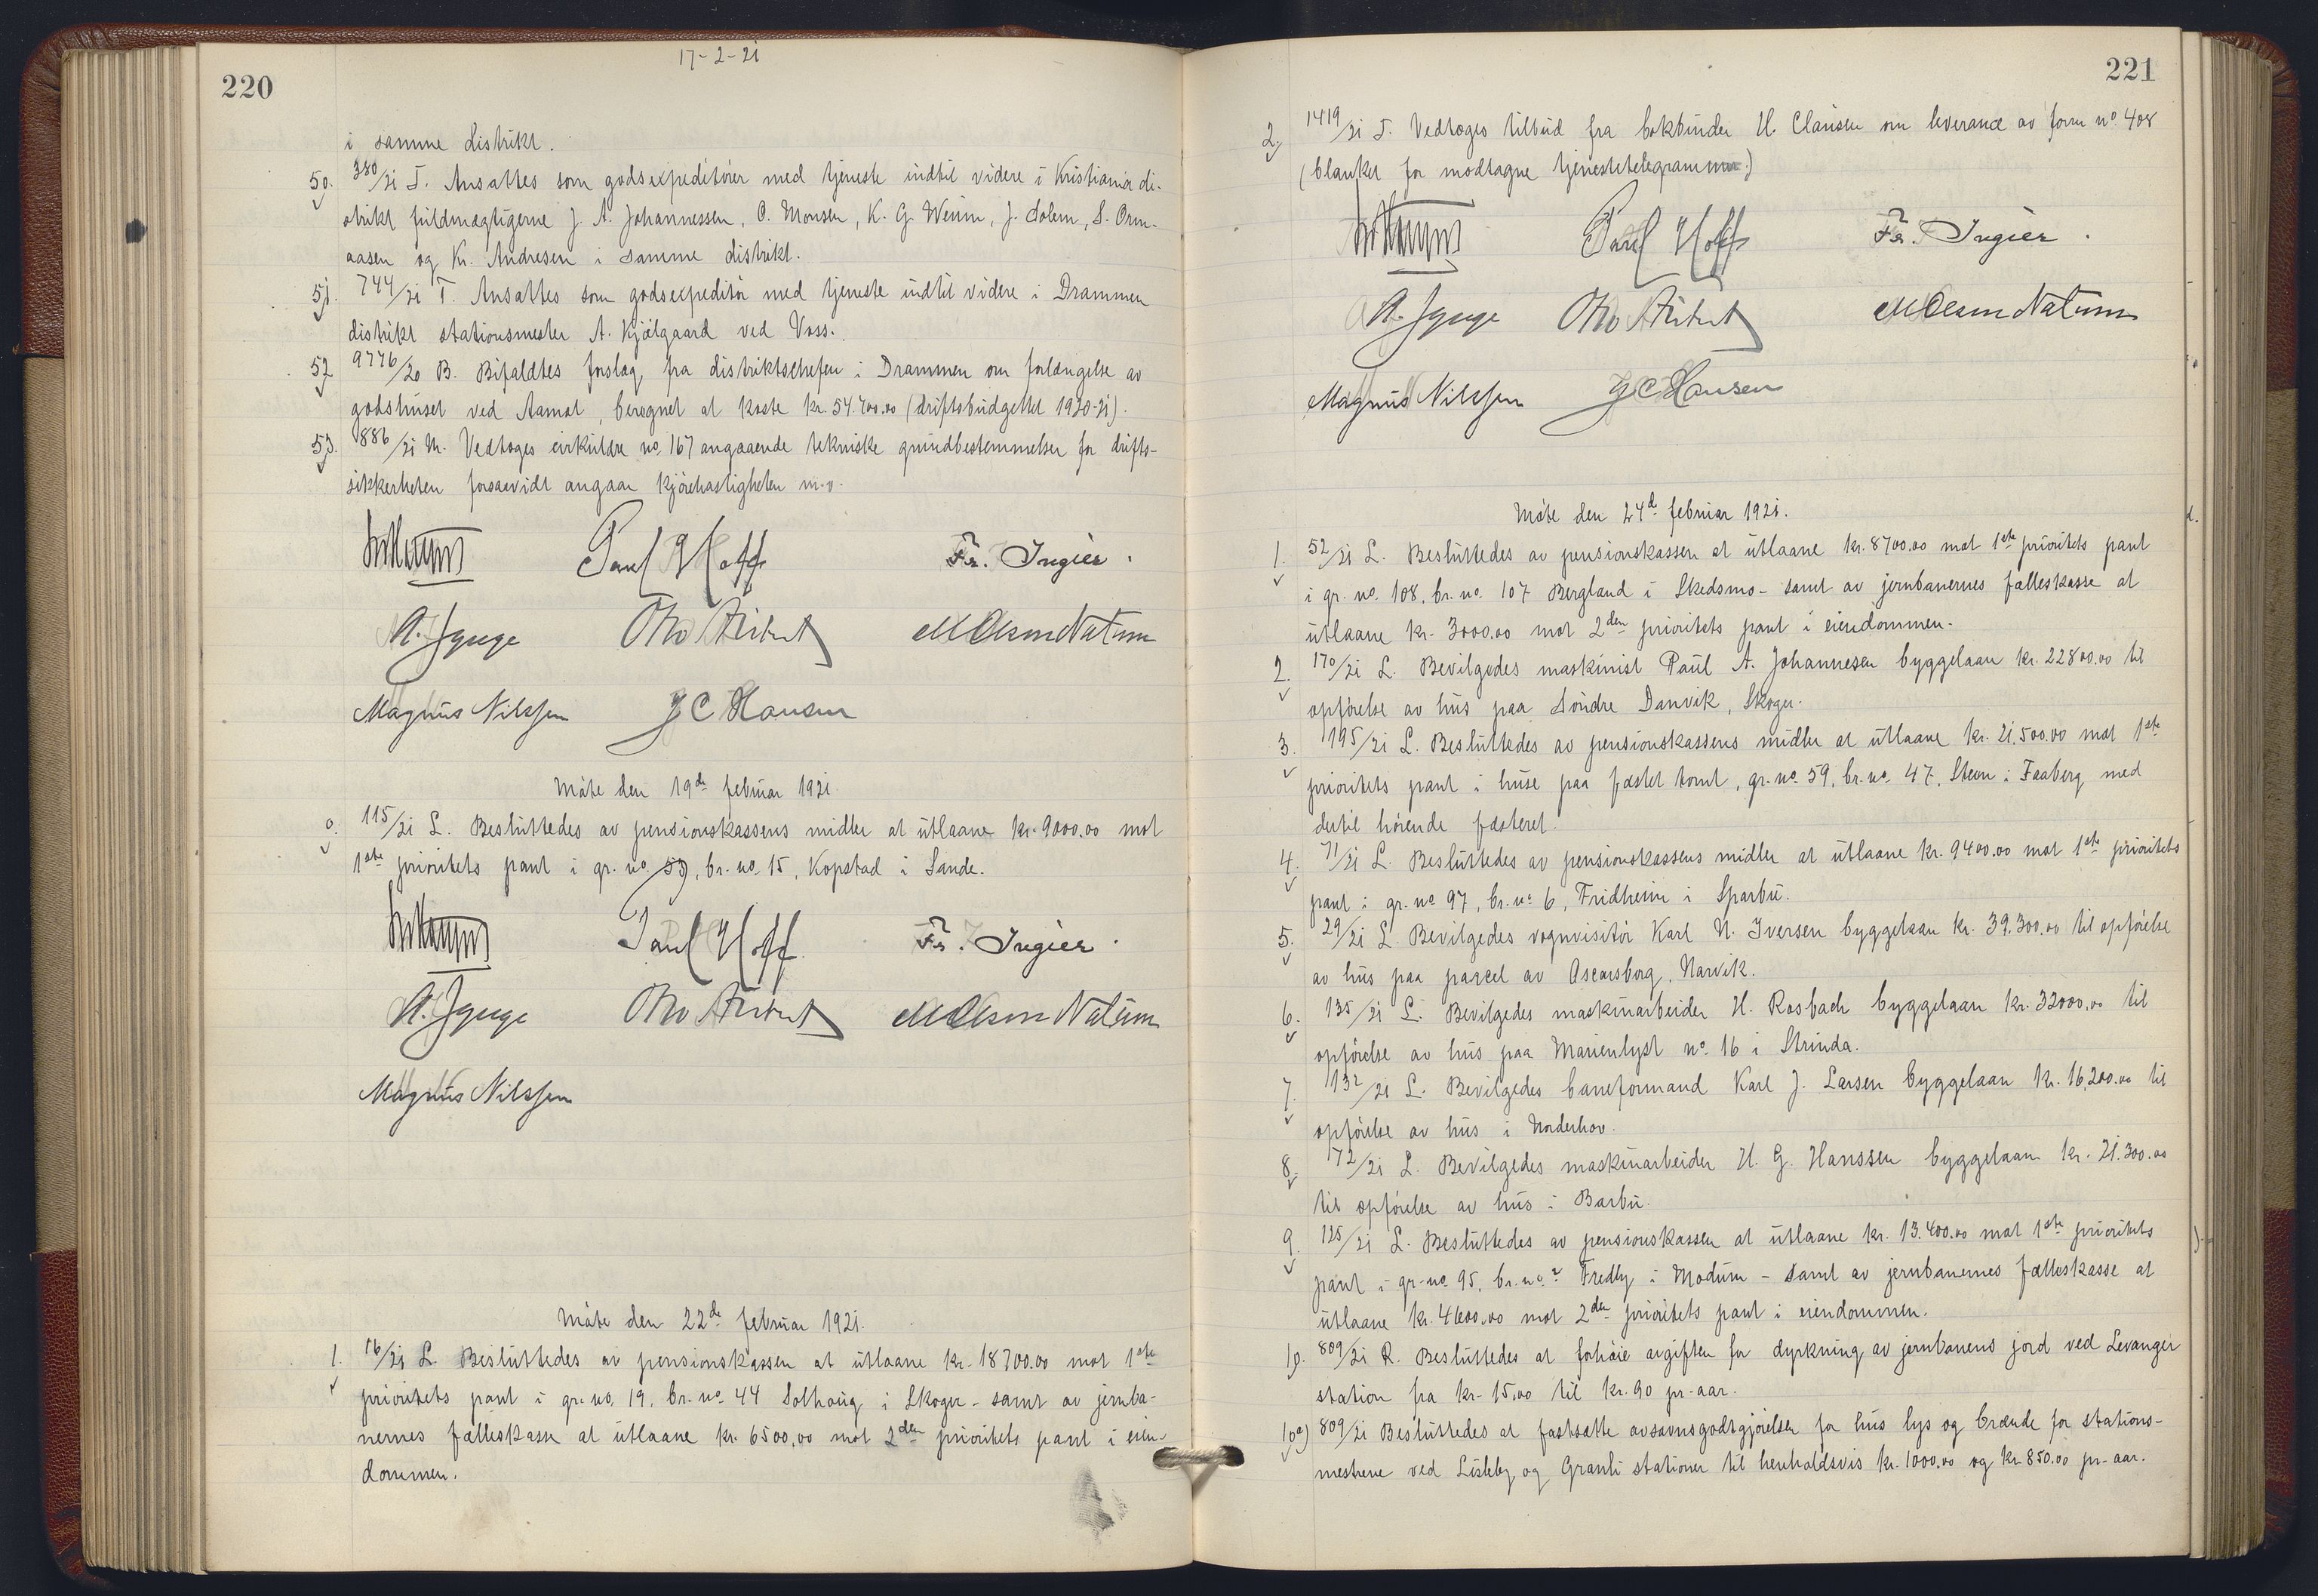 220
17-2-21
i samme distrikt.
50. 380/21 T. Ansattes som godsexpeditører med tjeneste indtil videre i Kristiania di-
strikt fuldmægtigerne J. A. Johannessen, O. Monsen, K. G. Weum, J. Solem, S. Orm-
aasen og Kr. Andresen i samme distrikt.
51. 744/21 T. Ansattes som godsexpeditör med tjeneste indtil videre i Drammen
distrikt stationsmester A. Kjölgaard ved Voss.
52 9776/20 B. Bifaldtes forslag fra distriktschefen i Drammen om forlængelse av
godshuset ved Aamot, beregnet at koste kr. 54.700.00 (driftsbudgettet 1920-21).
53. 886/21 M. Vedtoges cirkulære no. 167 angaaende tekniske grundbestemmelser for drifts-
sikkerheten forsaavidt angaar kjörehastigheten m.v.
Paul Hoff Fr. Ingier.
Magnus Nilssen J C Hansen
Möte den 19de februar 1921.
0. 115/21 L. Besluttedes av pensionskassens midler at utlaane kr. 9000.00 mot
1ste prioritets pant i gr. no. 59, br. no. 15, Kopstad i Sande.
Paul Hoff Fr. Ingier.
Magnus Nilssen
Möte den 22de februar 1921.
1. 16/21 L. Besluttedes av pensionskassen at utlaane kr. 18700.00 mot 1ste
prioritets pant i gr. no. 19, br. no. 44 Solhaug i Skoger - samt av jernba-
nernes fælleskasse at utlaane kr. 6500.00 mot 2den prioritets pant i eien-
dommen.
221
2. 1419/21 T. Vedtoges tilbud fra bokbinder H. Clausen om leverance av form no. 408
(blanket for modtagne tjenestetelegrammer.)
Paul Hoff Fr. Ingier.
Magnus Nilssen J C Hansen
Möte den 24de februar 1921.
1. 52/21 L. Besluttedes av pensionskassen at utlaane kr. 8700.00 mot 1ste prioritets pant
i gr. no. 108, br. no. 107 Bergland i Skedsmo - samt av jernbanernes fælleskasse at
utlaane kr. 3000.00 mot 2den prioritets pant i eiendommen.
2. 170/21 L. Bevilgedes maskinist Paul A. Johannesen byggelaan kr. 22800.00 til
opförelse av hus paa Söndre Danvik, Skoger.
3. 195/21 L. Besluttedes av pensionskassens midler at utlaane kr. 21.500.00 mot 1ste
prioritets pant i huse paa fæstet tomt, gr. no. 59, br. no. 47, Steen i Faaberg med
dertil hörende fæsteret.
4. 71/21 L. Besluttedes av pensionskassens midler at utlaane kr. 9400.00 mot 1ste prioritets
pant i gr. no. 97, br. no. 6, Fridheim i Sparbu.
5. 29/21 L. Bevilgedes vognvisitör Karl N. Iversen byggelaan kr. 39.300.00 til opförelse
av hus paa parcel av Oscarsborg, Narvik.
6. 135/21 L. Bevilgedes maskinarbeider H. Rosbach byggelaan kr. 32000.00 til
opförelse av hus paa Marienlyst no. 16 i Strinda.
7. 132/21 L. Bevilgedes baneformand Karl J. Larsen byggelaan kr. 16,200.00 til
opförelse av hus i Norderhov.
8. 172/21 L. Bevilgedes maskinarbeider H. G. Hanssen byggelaan kr. 21.300.00
til opförelse av hus i Barbu.
9. 125/21 L. Besluttedes av pensionskassen at utlaane kr. 13.400.00 mot 1ste prioritets
pant i gr. no. 95, br. no. 2 Fredly i Modum - samt av jernbanernes fælleskasse at
utlaane kr. 4600.00 mot 2den prioritets pant i eiendommen.
10. 809/21 R. Besluttedes at forhöie avgiften for dyrkning av jernbanens jord ved Levanger
station fra kr. 15.00 til kr. 90 pr. aar.
10a) 809/21 Besluttedes at fastsætte avsavnsgodtgjörelsen for hus lys og brænde for stations-
mestrene ved Lisleby og Granli stationer til henholdsvis kr. 1000.00 og kr. 850.00 pr. aar.